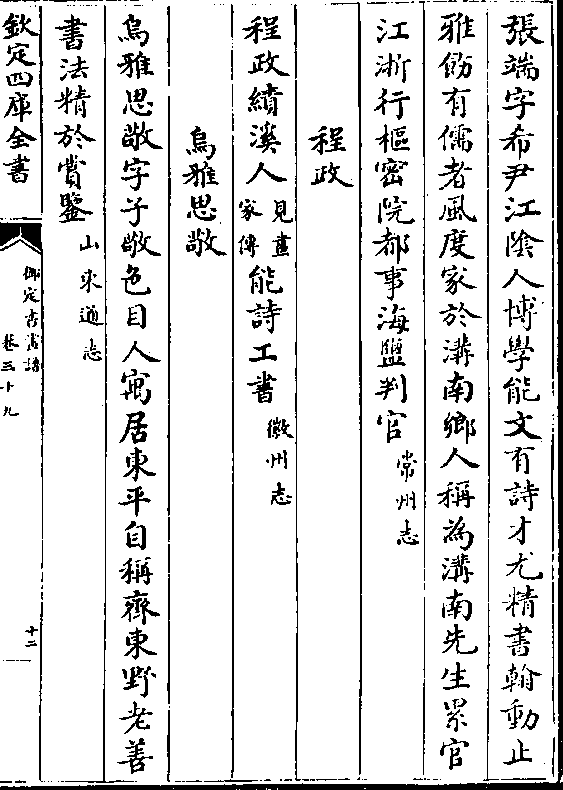 張端字希尹江隂人博學能文有詩才尤精書翰動止
雅飭有儒者風度家於溝南鄉人稱為溝南先生累官
江浙行樞密院都事海鹽判官常州志
程政
程政績溪人見畫家傳能詩工書徽州志
烏雅思敬
烏雅思敬字子敬色目人寓居東平自稱齊東野老善
書法精於賞鑒山東通志
欽定四庫全書
御定書畫譜
卷三十九
十二